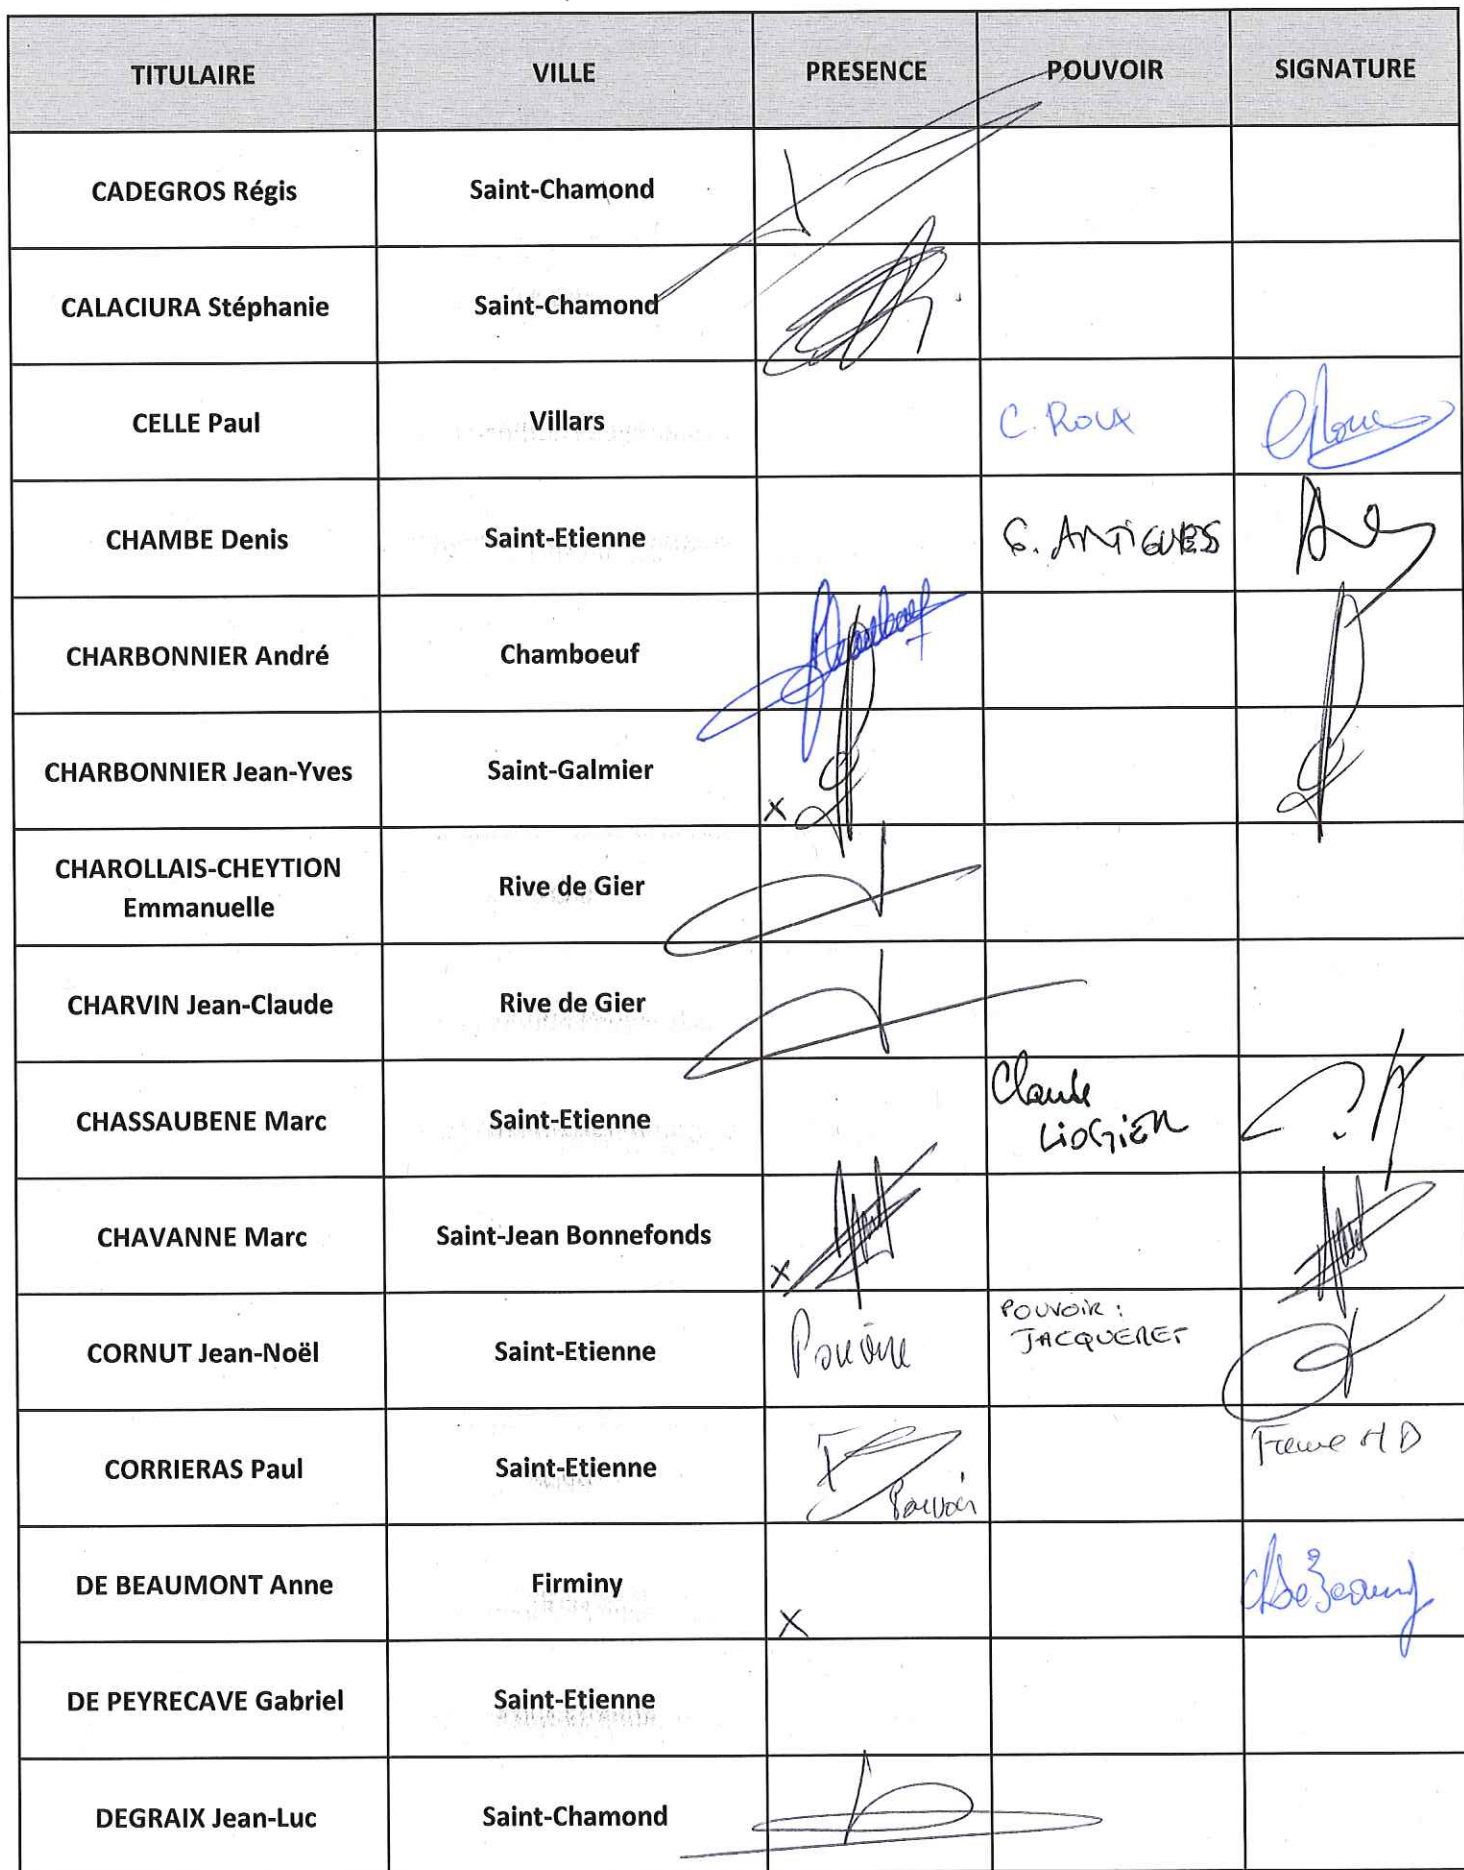 TITULAIRE VILLE PRESENCE POUVOIR SIGNATURE
CADEGROS Régis Saint-Chamond
CALACIURA Stéphanie Saint-Chamond
CELLE Paul Villars C. ROUX
CHAMBE Denis Saint-Etienne G. ARTIGUES
CHARBONNIER André Chamboeuf
CHARBONNIER Jean-Yves Saint-Galmier X
CHAROLLAIS-CHEYTION
Emmanuelle Rive de Gier
CHARVIN Jean-Claude Rive de Gier
CHASSAUBENE Marc Saint-Etienne Claude
LIOGIER
CHAVANNE Marc Saint-Jean Bonnefonds X
CORNUT Jean-Noël Saint-Etienne Pouvoir POUVOIR :
JACQUERET
CORRIERAS Paul Saint-Etienne Pouvoir
DE BEAUMONT Anne Firminy X
DE PEYRECAVE Gabriel Saint-Etienne
DEGRAIX Jean-Luc Saint-Chamond